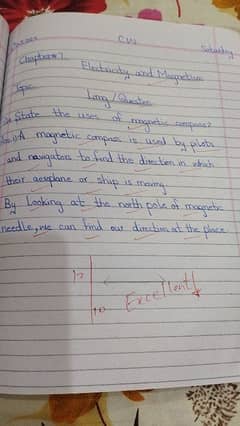 CW
Saturday
Chapter# 7
Electricity and Magnetism
Topic
Long / Question
State the uses of magnetic compass?
A magnetic compass is used by pilots
and navigators to find the direction in which
their aeroplane or ship is moving.
By Looking at the north pole of magnetic
needle, we can find our direction at the place.
Excellent